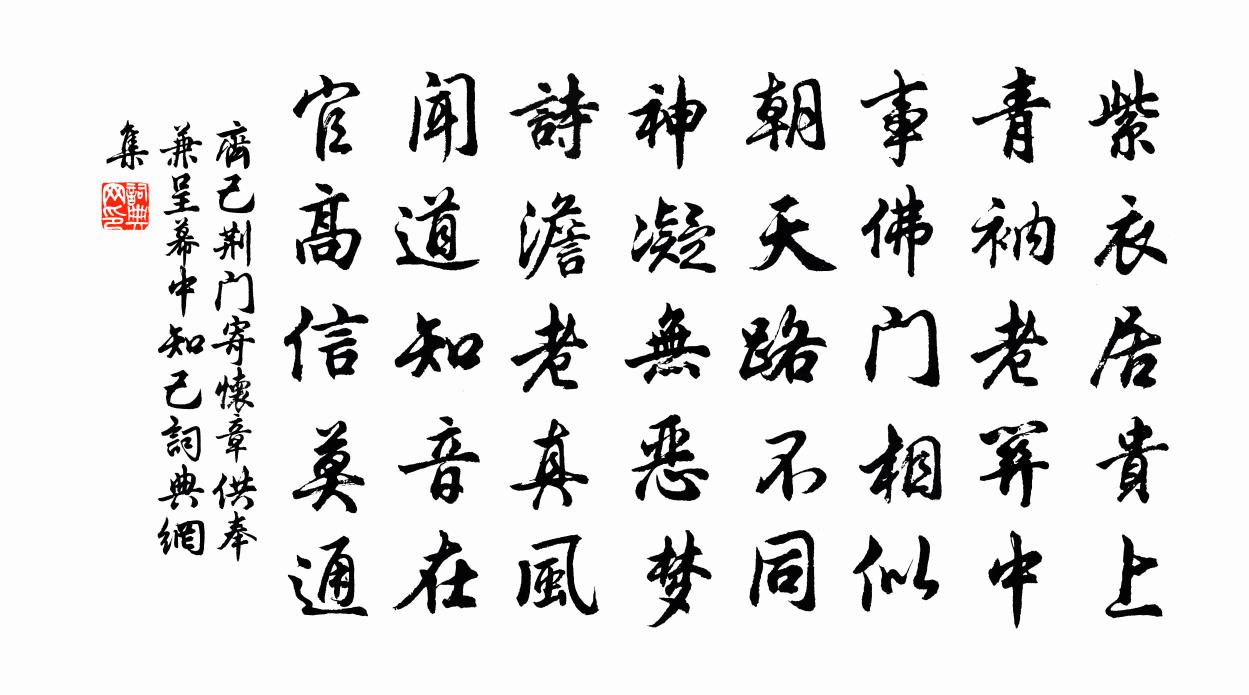 紫衣居貴上
青衲老關中
事佛門相似
朝天路不同
神凝無惡梦
詩澹老真風
聞道知音在
官高信莫通
齊己荆门寄懷章供奉
兼呈幕中知己詞典網
集
詞典网印